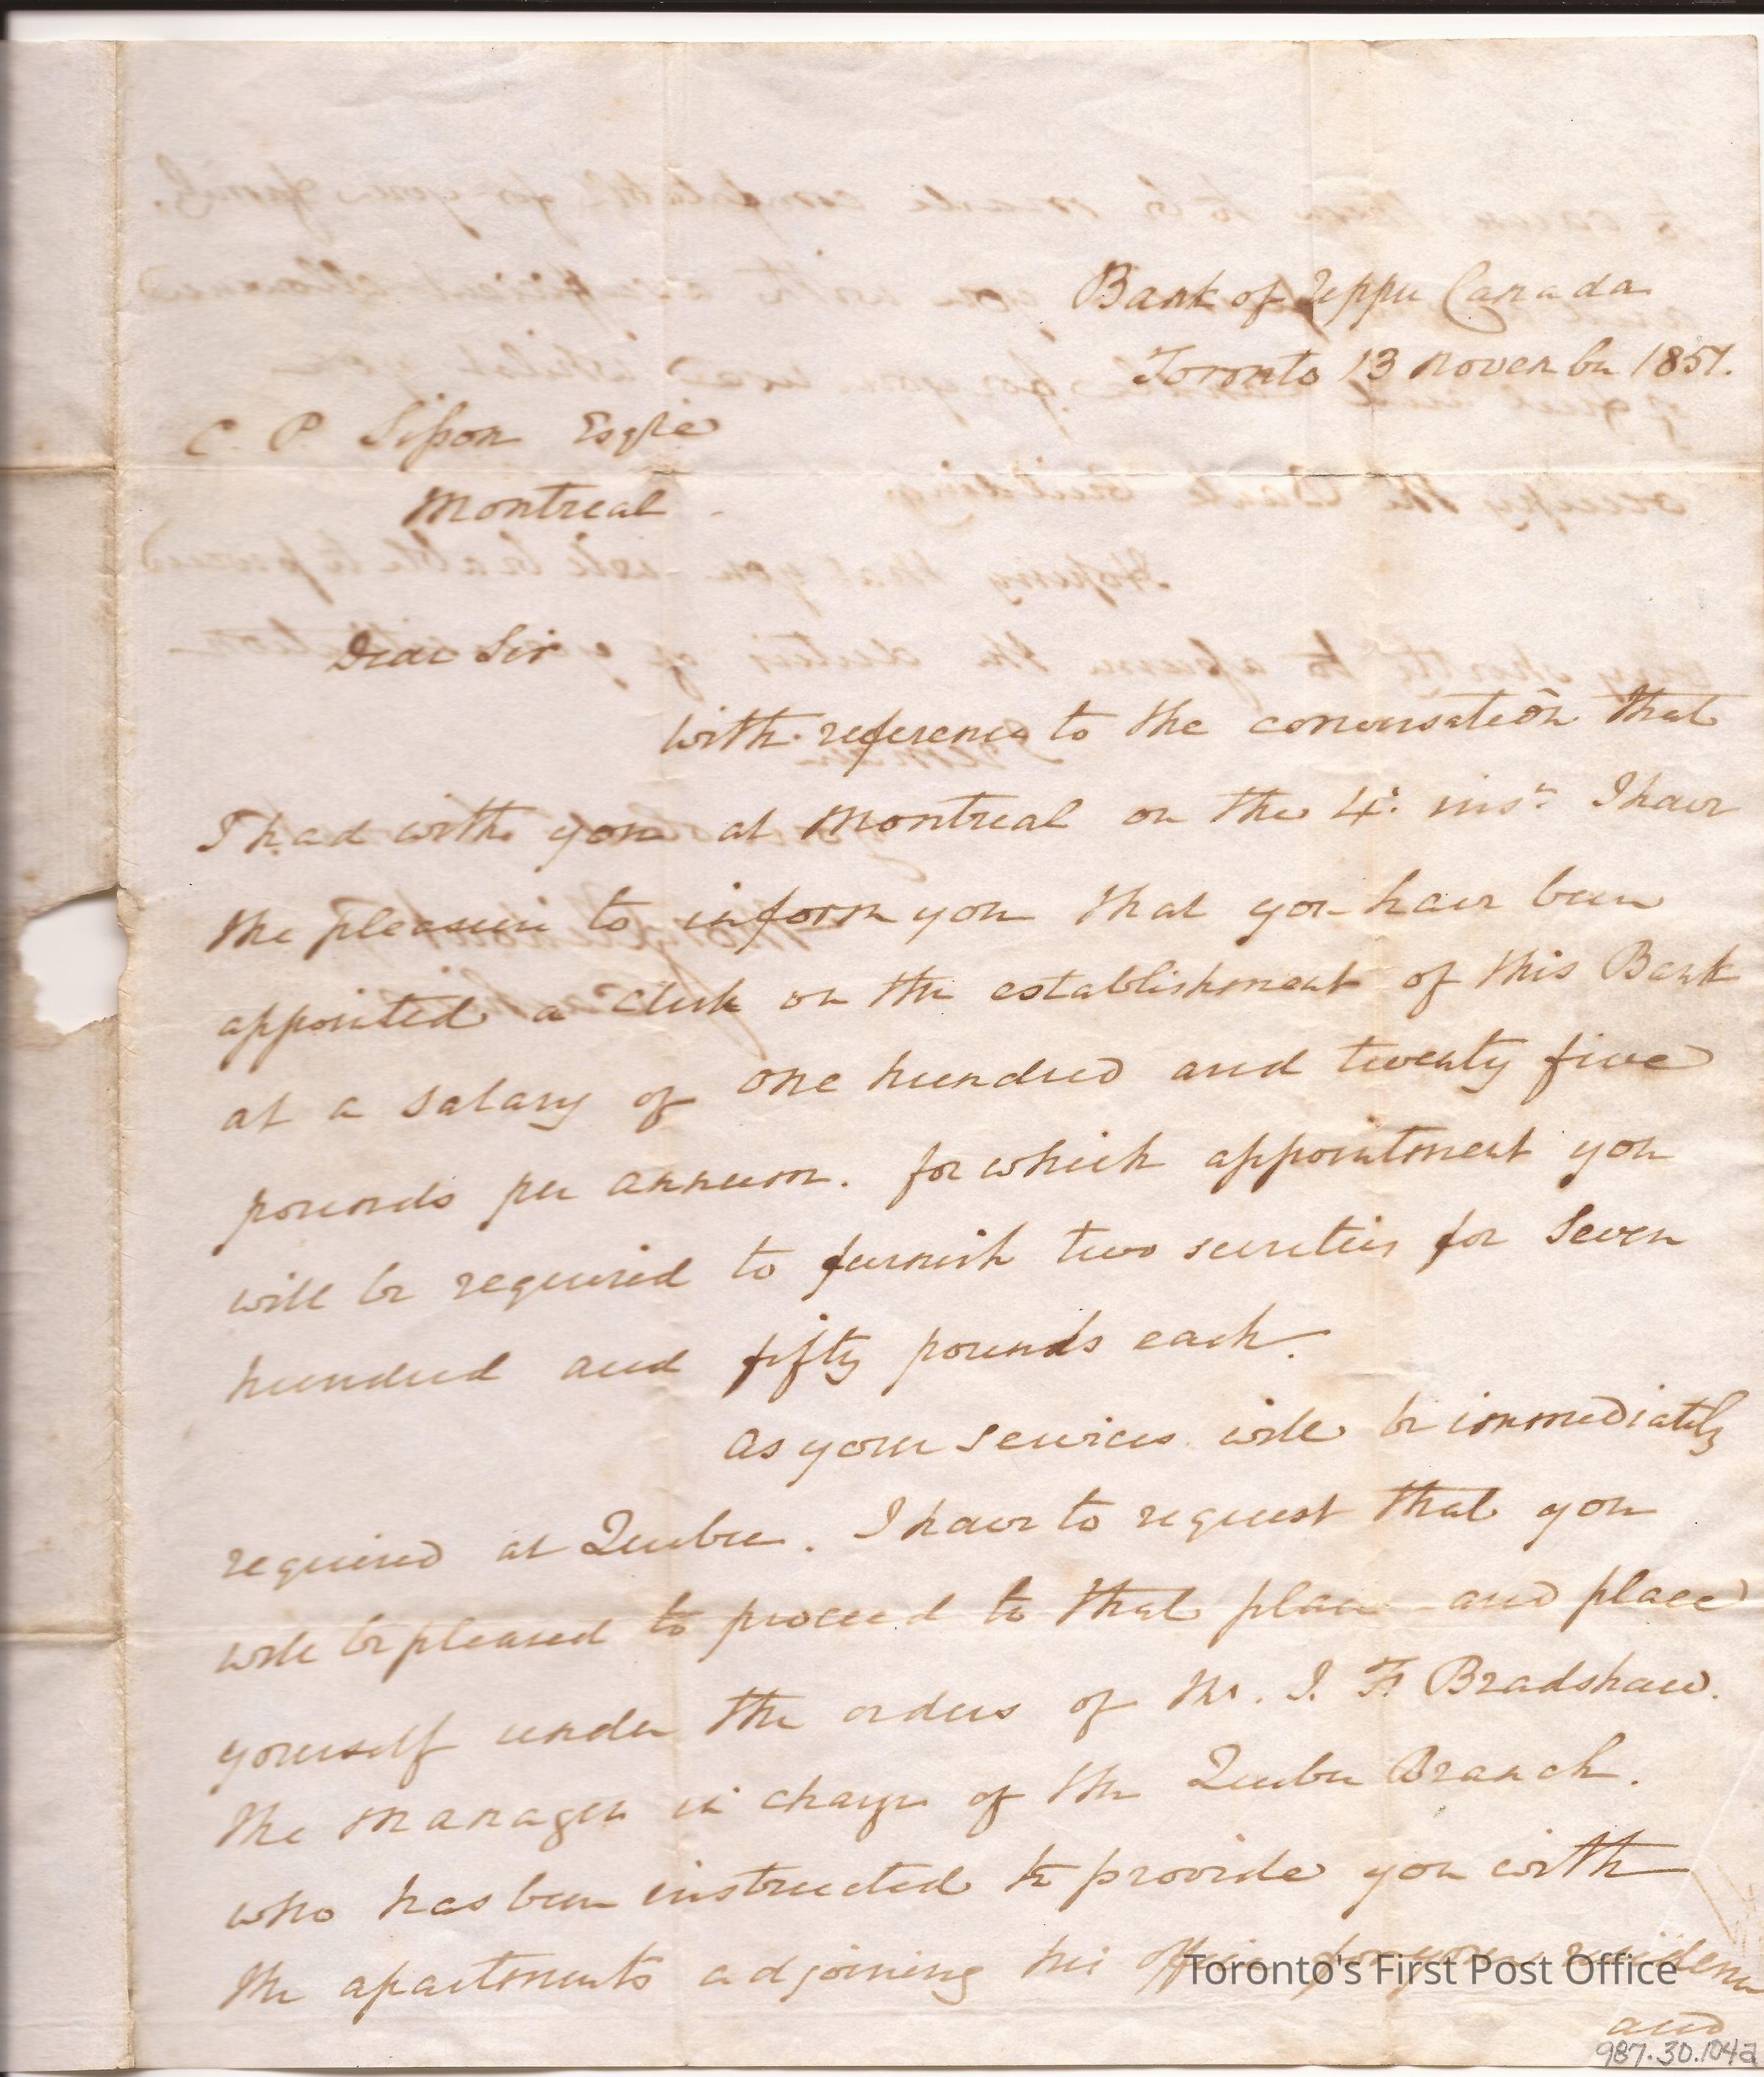 Bank of Upper Canada
Toronto 13 November 1851.
C. P. Sisson Esqre
Montreal -
Dear Sir
with reference to the conversation that
I had with you at Montreal on the 4th inst. I have
the pleasure to inform you that you have been
appointed a Clerk on the establishment of this Bank
at a salary of one hundred and twenty five
pounds per annum. for which appointment you
will be required to furnish two securities for Seven
hundred and fifty pounds each.
As your services will be immediately
required at Quebec. I have to request that you
will be pleased to proceed to that place and place
yourself under the orders of Mr. J. F. Bradshaw.
the Manager in charge of the Quebec Branch.
who has been instructed to provide you with
the apartments adjoining his office for your residence
and
Toronto's First Post Office
987.30.104a